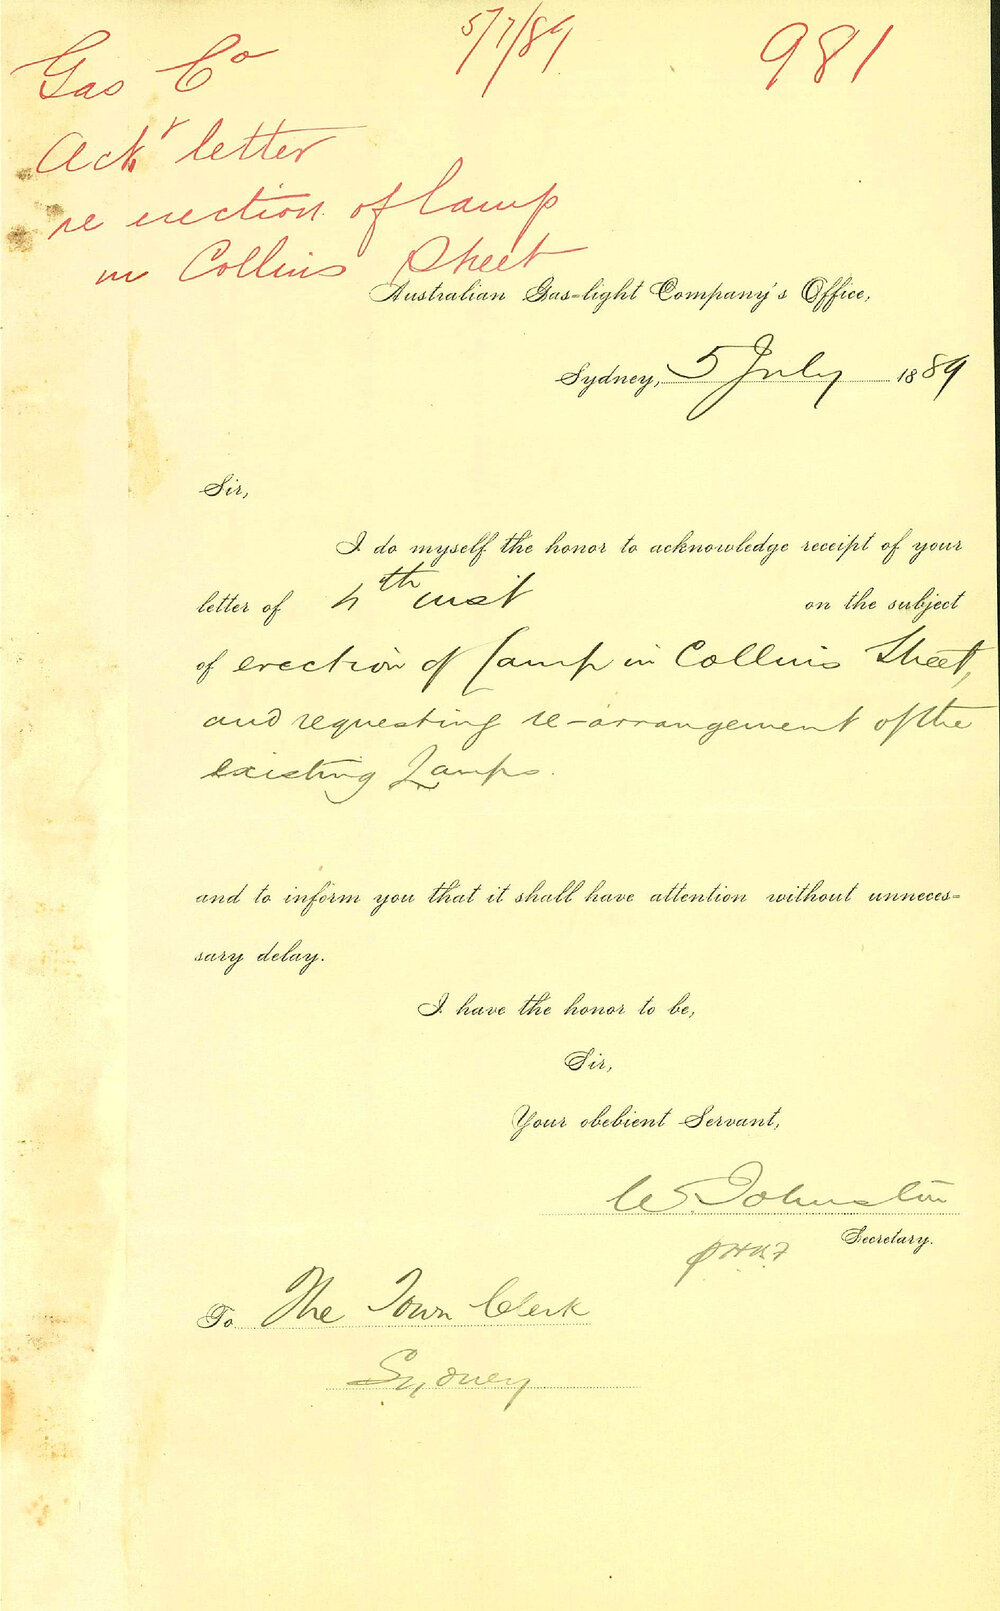 5/7/89
981
Gas Co
Ackr letter
re erection of lamp
in Collins Street
Australian Gas-light Company's Office,
Sydney, 5 July 1889
Sir,
I do myself the honor to acknowledge receipt of your
letter of 4th inst on the subject
of erection of Lamp in Collins Street,
and requesting re-arrangement of the
existing Lamps.
and to inform you that it shall have attention without unneces=
sary delay.
I have the honor to be,
Sir,
Your obebient Servant,
W Johnston
Secretary.
To The Town Clerk
Sydney